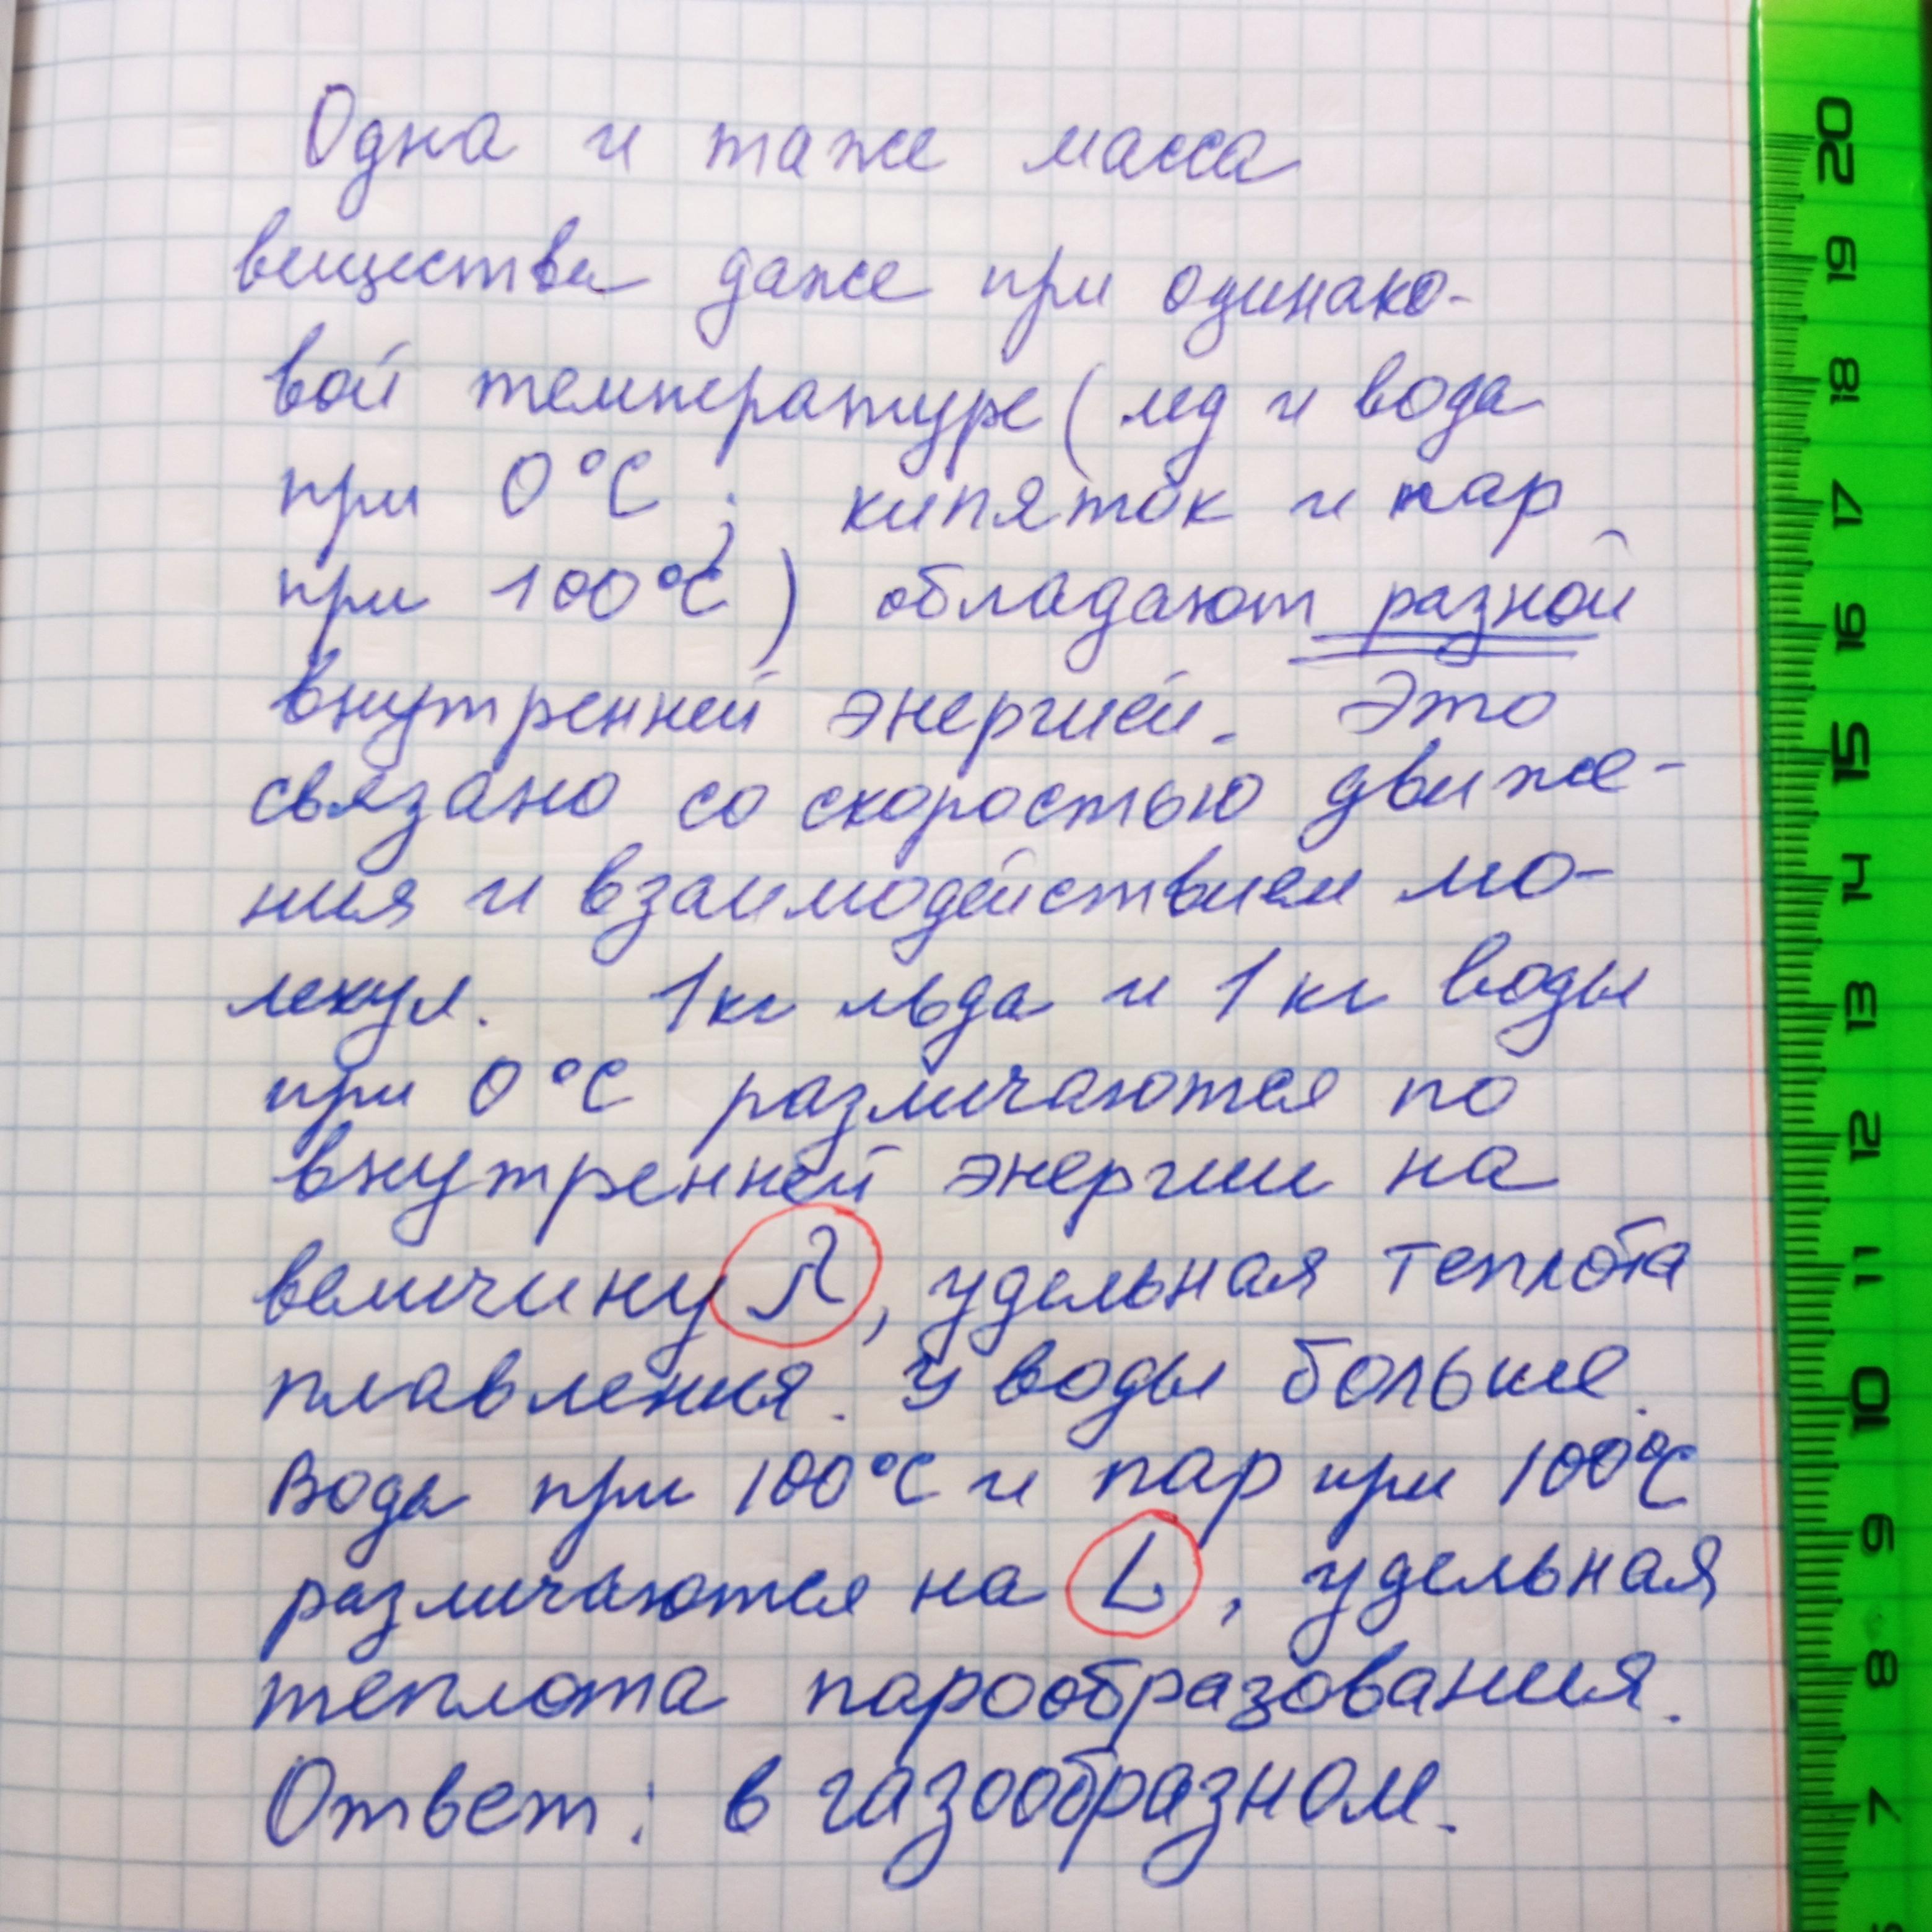 Одна и таже масса
вещества даже при одинако-
вой температуре (лед и вода
при 0°C; кипяток и пар
при 100°C) обладают разной
внутренней энергией. Это
связано со скоростью движе-
ния и взаимодействием мо-
лекул. 1кг льда и 1 кг воды
при 0°C различаются по
внутренней энергии на
величину λ, удельная теплота
плавления. У воды больше.
Вода при 100°C и пар при 100°C
различаются на L, удельная
теплота парообразования.
Ответ: в газообразном.
20
19
18
17
16
15
14
13
12
11
10
9
8
7